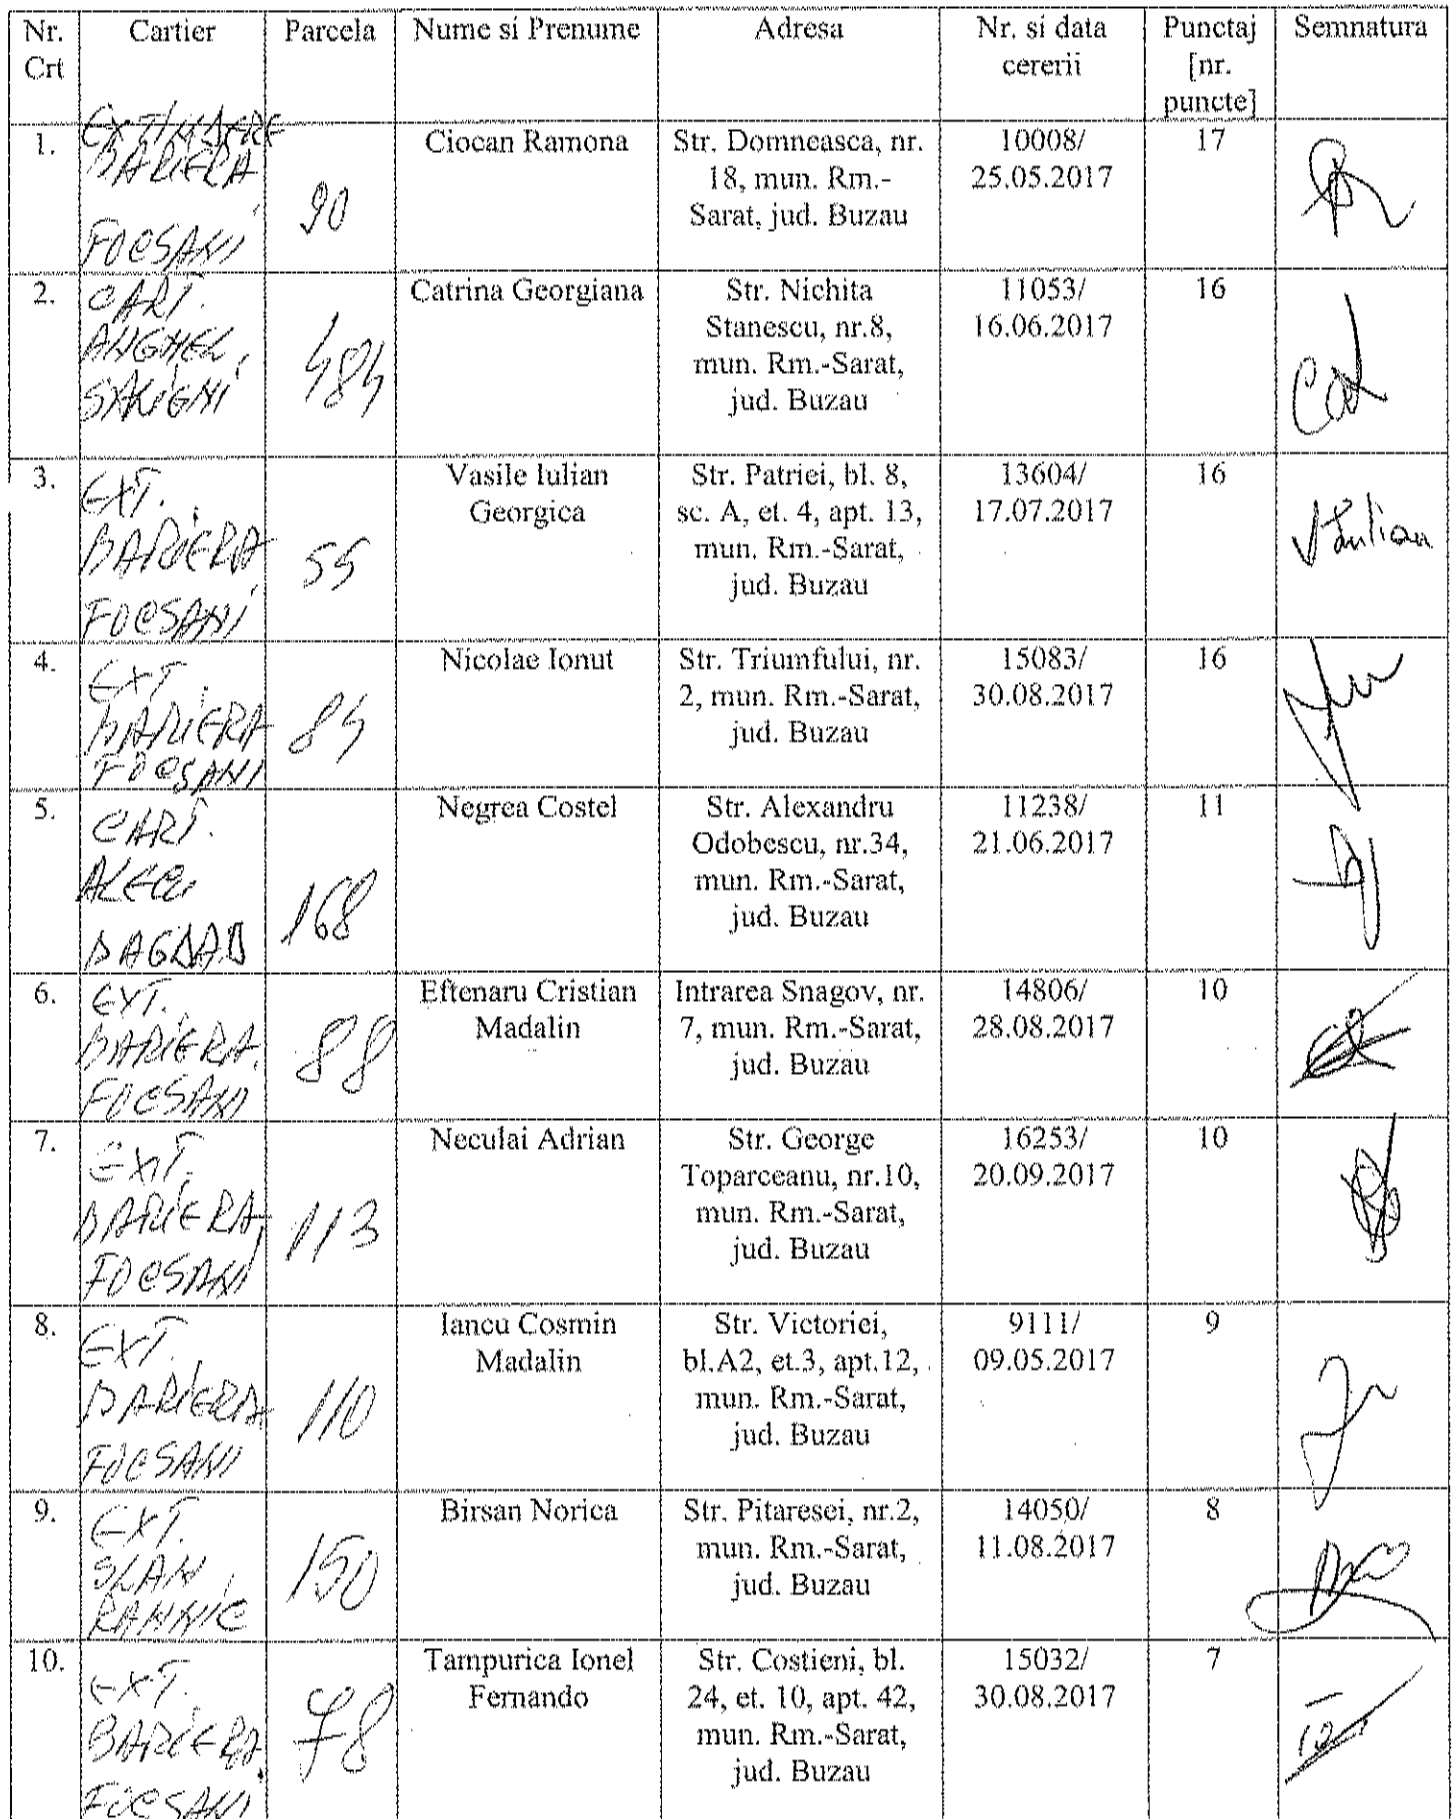 Nr. Crt
Cartier
Parcela
Nume si Prenume
Adresa
Nr. si data
cererii
Punctaj
[nr.
puncte]
Semnatura
1.
EXTINDERE
BARIERA
FOCSANI
90
Ciocan Ramona
Str. Domneasca, nr.
18, mun. Rm.-
Sarat, jud. Buzau
10008/
25.05.2017
17
2.
CART.
ANGHEL
SALIGNI
484
Catrina Georgiana
Str. Nichita
Stanescu, nr.8,
mun. Rm.-Sarat,
jud. Buzau
11053/
16.06.2017
16
3.
EXT.
BARIERA
FOCSANI
Vasile Iulian
Georgica
Str. Patriei, bl. 8,
sc. A, et. 4, apt. 13,
mun. Rm.-Sarat,
jud. Buzau
13604/
17.07.2017
16
4.
EXT.
BARIERA
FOCSANI
84
Nicolae Ionut
Str. Triumfului, nr.
2, mun. Rm.-Sarat,
jud. Buzau
15083/
30.08.2017
16
5.
CART.
ALECU
BAGDAD
168
Negrea Costel
Str. Alexandru
Odobescu, nr.34,
mun. Rm.-Sarat,
jud. Buzau
11238/
21.06.2017
11
6.
EXT.
BARIERA
FOCSANI
88
Eftenaru Cristian
Madalin
Intrarea Snagov, nr.
7, mun. Rm.-Sarat,
jud. Buzau
14806/
28.08.2017
10
7.
EXT.
BARIERA
FOCSANI
113
Neculai Adrian
Str. George
Toparceanu, nr.10,
mun. Rm.-Sarat,
jud. Buzau
16253/
20.09.2017
10
8.
EXT.
BARIERA
FOCSANI
110
Iancu Cosmin
Madalin
Str. Victoriei,
bl.A2, et.3, apt.12,
mun. Rm.-Sarat,
jud. Buzau
9111/
09.05.2017
9
9.
EXT.
SLAM
RAMNIC
150
Birsan Norica
Str. Pitaresei, nr.2,
mun. Rm.-Sarat,
jud. Buzau
14050/
11.08.2017
8
10.
EXT.
BARIERA
FOCSANI
78
Tampurica Ionel
Fernando
Str. Costieni, bl.
24, et. 10, apt. 42,
mun. Rm.-Sarat,
jud. Buzau
15032/
30.08.2017
7